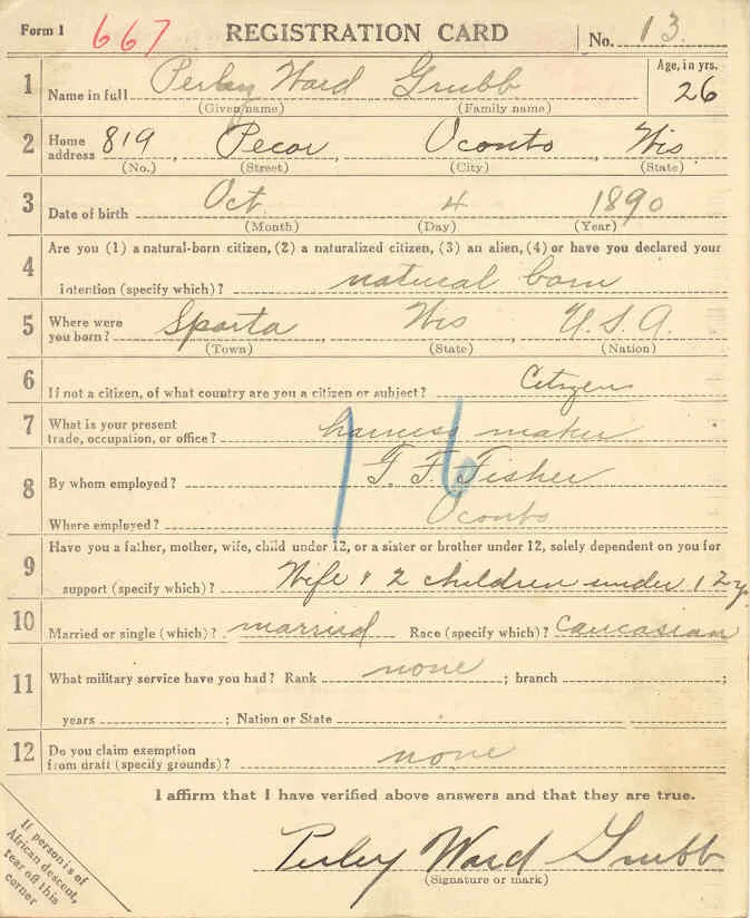 Form 1 667 REGISTRATION CARD No. 13
1 Name in full Perley Ward Grubb Age, in yrs. 26
(Given name) (Family name)
2 Home address 819 Pecor Oconto Wis
(No.) (Street) (City) (State)
3 Date of birth Oct 4 1890
(Month) (Day) (Year)
4 Are you (1) a natural-born citizen, (2) a naturalized citizen, (3) an alien, (4) or have you declared your
intention (specify which)? natural born
5 Where were you born? Sparta Wis U.S.A.
(Town) (State) (Nation)
6 If not a citizen, of what country are you a citizen or subject? Citizen
7 What is your present
trade, occupation, or office? harness maker
16
8 By whom employed? G. F. Fisher
Where employed? Oconto
9 Have you a father, mother, wife, child under 12, or a sister or brother under 12, solely dependent on you for
support (specify which)? Wife & 2 children under 12 y
10 Married or single (which)? married Race (specify which)? Caucasian
11 What military service have you had? Rank none ; branch ;
years ; Nation or State
12 Do you claim exemption
from draft (specify grounds)? none
I affirm that I have verified above answers and that they are true.
Perley Ward Grubb
(Signature or mark)
If person is of
African descent,
tear off this
corner